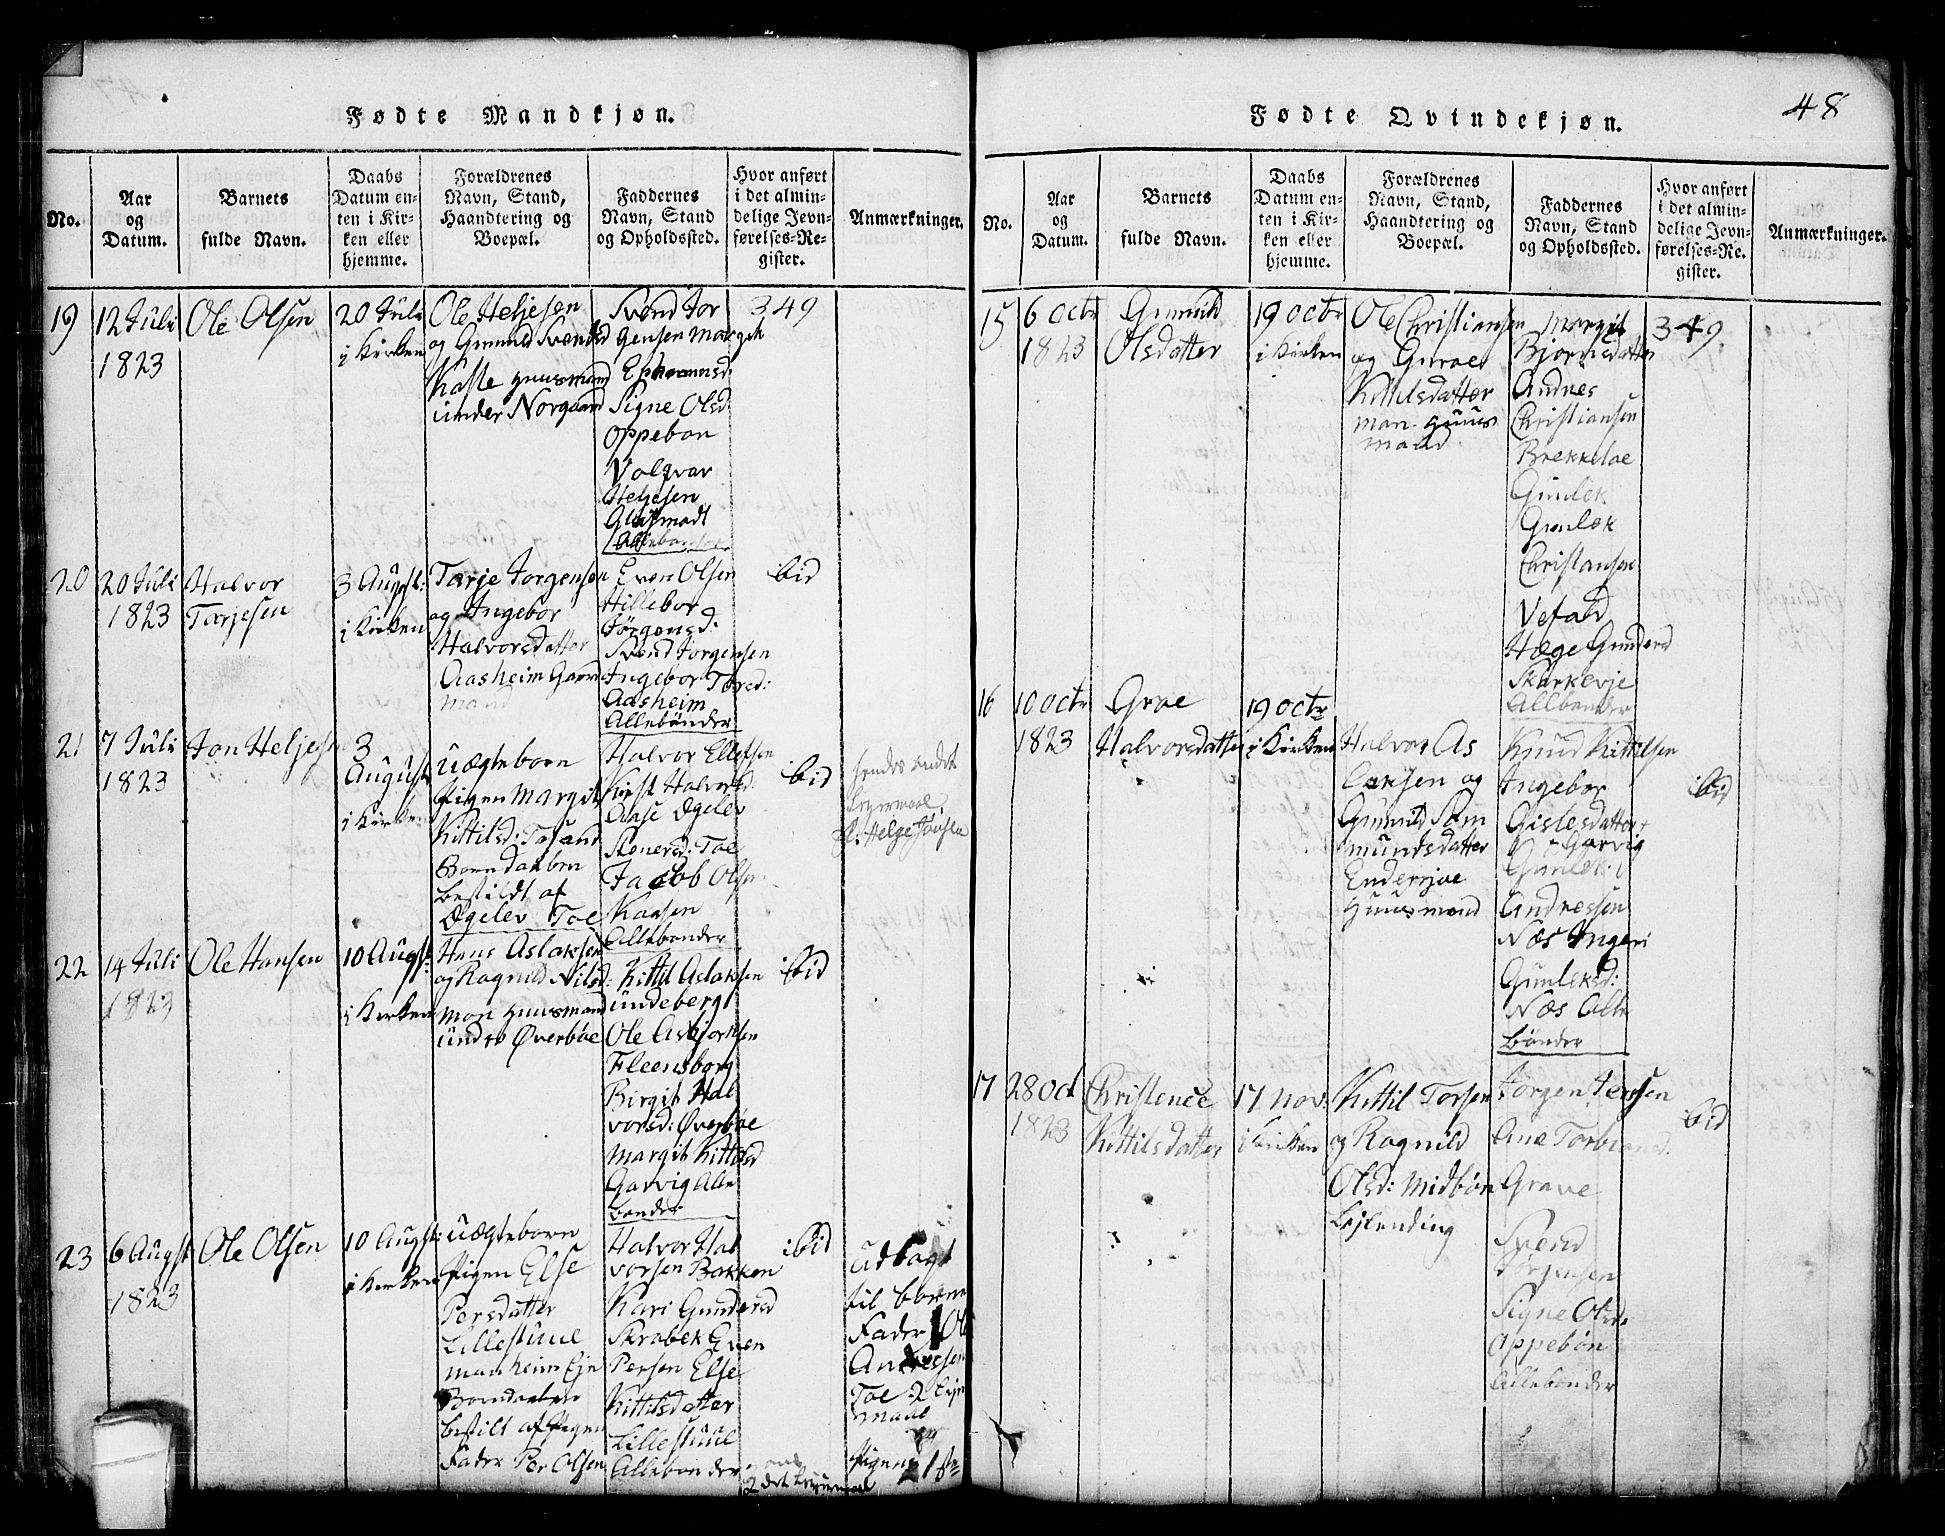 48
Fødte Mandkjøn.
No.
Aar
og
Datum.
Barnets
fulde Navn.
Daabs
Datum en-
ten i Kir-
ken eller
hjemme.
Forældrenes
Navn, Stand,
Haandtering og
Boepæl.
Faddernes
Navn, Stand
og Opholdssted.
Hvor anført
i det almin-
delige Jevn-
førelses-Re-
gister.
Anmærkninger.
19
12 Juli
1823
Ole Olsen
20 Juli
i Kirken
Ole Heljesen
og Gunnild Svendsd
Kaste Huusmand
under Norgaard
Svend Jor
gensen Margit
Signe Olsd:
Oppebøn
Volqvar
Heljesen
Allebønder
349
20
20 Juli
1823
Halvor
Tarjesen
3 Augst:
i Kirken
Tarje Jorgensen
og Ingebor
Halvorsdatter
Aasheim Gaard
mand
Even Olsen
Hillebor
Jørgensd:
Svend Jorgensen
Ingebor Tored:
Aasheim
Allebønder
ibid
21
7 Juli
1823
Jon Heljesen
3
August
i Kirke
uægteborn
Pigen Margit
Kittilsd:
Borndaaben
bestildt af
Øgelev Toe
Halvor Ellefsen
Aase Øgelev
Stenersd: Toe
Jacob Olsen
Kaasen
Allebønder
ibid
hendes andet
Leyermaal
Helge Jansen
22
14 Juli
1823
Ole Hansen
10 Augst:
i Kirken
Hans Aslaksen
og Ragnild Nilsd:
Moen Huusmand
under Øverbøe
Kittil Aslaksen
Lindeberg
Ole Asbjørnsen
Fleensborg
Birgit Hal
vorsd: Øverbøe
Margit Kittilsd
Garvig Alle
bønder
ibid
23
6 Augst
1823
Ole Olsen
10 Augst:
i Kirken
uægteborn
Pigen Else
Persdatter
Lillestuul
Manheim Eje
Borndaaben
bestilt af Pigens
Fader Per Olsen
Halvor Hal
vorsen Bakken
Kari Gundersd
Skrabek Even
Persen Else
Kittilsdatter
Lillestuul
Allebønder
ibid
udlagt
til barne
Fader Ol
Andresen
Toe 2 Leje
maal
Pigens 1ste
2det Leyermaal
Fødte Qvindekjøn.
No.
Aar
og
Datum.
Barnets
fulde Navn.
Daabs
Datum en-
ten i Kir-
ken eller
hjemme.
Forældrenes
Navn, Stand,
Haandtering og
Boepæl.
Faddernes
Navn, Stand
og Opholdssted.
Hvor anført
i det almin-
delige Jevn-
førelses-Re-
gister.
Anmærkninger.
15
6 Octr
1823
Gunnild
Olsdatter
19 Octr
i Kirken
Ole Christiansen
og Guroe
Kittilsdatter
Moen Huus
mand
Margit
Bjørnsdatter
Andres
Christiansen
Brekkeloe
Gunlek
Gunlek
Christansen
Vefald
Hæge Gundersd
Skarkevje
Allbønder
349
16
10 Octr
1823
Groe
Halvorsdatter
19 Octr
i Kirken
Halvor As
laksen og
Gunnild Sam
mundsdatter
Endersjoe
Huusmand
Knud Kittilsen
Ingebor
Gislesdatter
Garvig
Gunlek
Andressen
Næs Ingeri
Gunleksd:
Næs Alle
bønder
ibid
17
28 Oct
1823
Christence
Kittilsdatter
17 Nov.
i Kirken
Kittil Torsen
og Ragnild
Olsd: Midbøen
Lejlending
Jørgen Jensen
Ane Torbiornsd.
Grave
Svend
Jørgensen
Signe Olsd:
Oppebøn
Allebønder
ibid